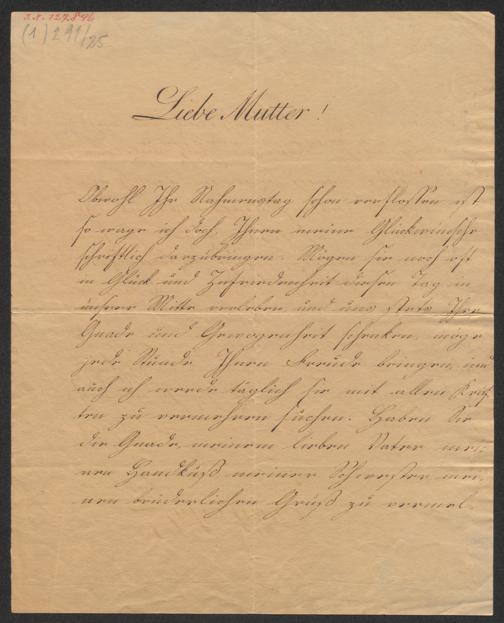 I.N. 127.896
(1) 291/25
Liebe Mutter!
Obwohl Ihr Nahmenstag schon verflossen ist
so wage ich doch, Ihnen meine Glückwünsche
schriftlich darzubringen. Mögen sie noch oft
in Glück und Zufriedenheit diesen Tag in
unserer Mitte verleben und uns stets Ihre
Gnade und Gewogenheit schenken, möge
jede Stunde Ihnen Freude bringen, und
auch ich werde täglich sie mit allen Kräf
ten zu vermehren suchen. Haben Sie
die Gnade meinem lieben Vater mei-
nen Handkuß meiner Schwester mei-
nen brüderlichen Gruß zu vermel